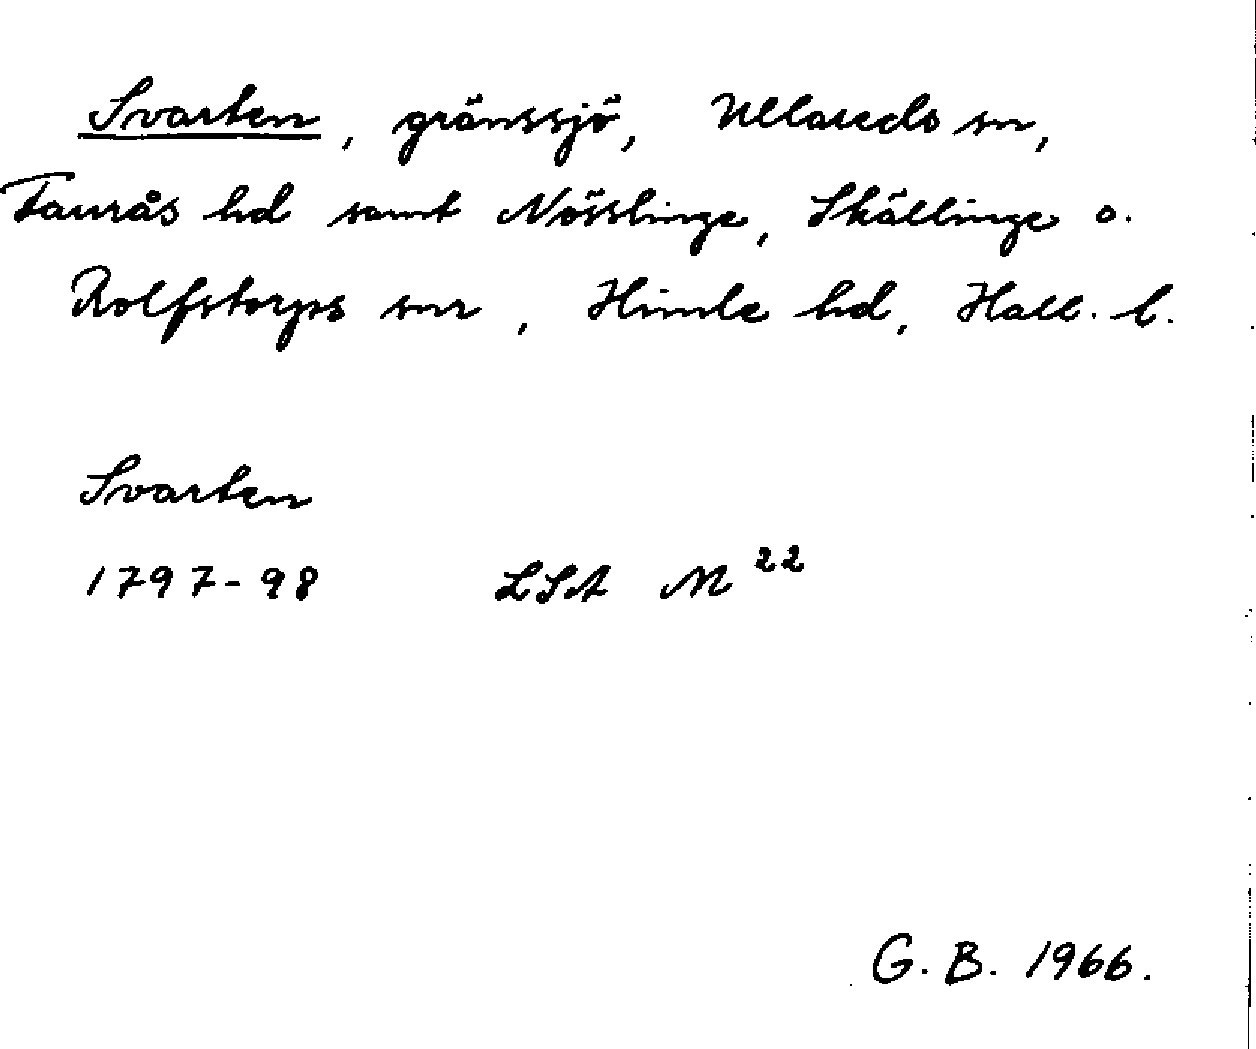 Svarten, gränssjö, Ullareds sn,
Faurås hd samt Nösslinge, Skällinge o.
Rolfstorps snr, Himle hd, Hall. l.
Svarten
1797-98 LSA M 22
G. B. 1966.